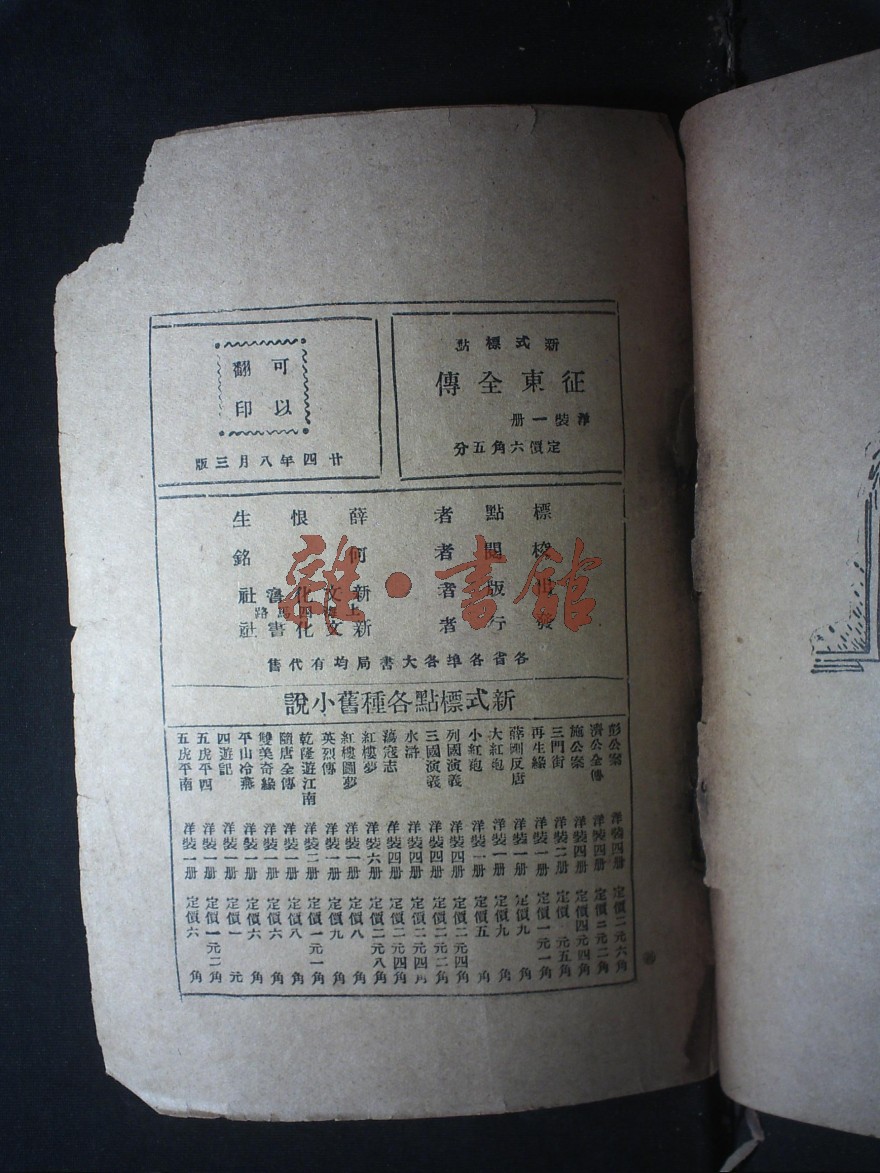 新式標點
征東全傳
洋裝一册
定價六角五分
可以
翻印
廿四年八月三版
標點者 薛恨生
校閱者 何銘
出版者 新文化書社
上海四馬路
發行者 新文化書社
各省各埠各大書局均有代售
新式標點各種舊小說
彭公案 洋裝四册 定價二元六角
濟公全傳 洋裝四册 定價二元二角
施公案 洋裝四册 定價四元四角
三門街 洋裝二册 定價一元五角
再生緣 洋裝一册 定價一元一角
薛剛反唐 洋裝一册 定價九角
大紅袍 洋裝一册 定價九角
小紅袍 洋裝一册 定價五角
列國演義 洋裝四册 定價二元四角
三國演義 洋裝四册 定價二元二角
水滸 洋裝四册 定價二元四角
蕩寇志 洋裝四册 定價二元四角
紅樓夢 洋裝六册 定價二元八角
紅樓圓夢 洋裝一册 定價八角
英烈傳 洋裝一册 定價九角
乾隆遊江南 洋裝二册 定價一元一角
隋唐全傳 洋裝一册 定價八角
雙美奇緣 洋裝一册 定價六角
平山冷燕 洋裝一册 定價六角
四遊記 洋裝一册 定價一元
五虎平西 洋裝一册 定價一元二角
五虎平南 洋裝一册 定價六角
雜·書館